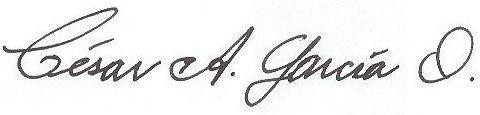 César A. García O.